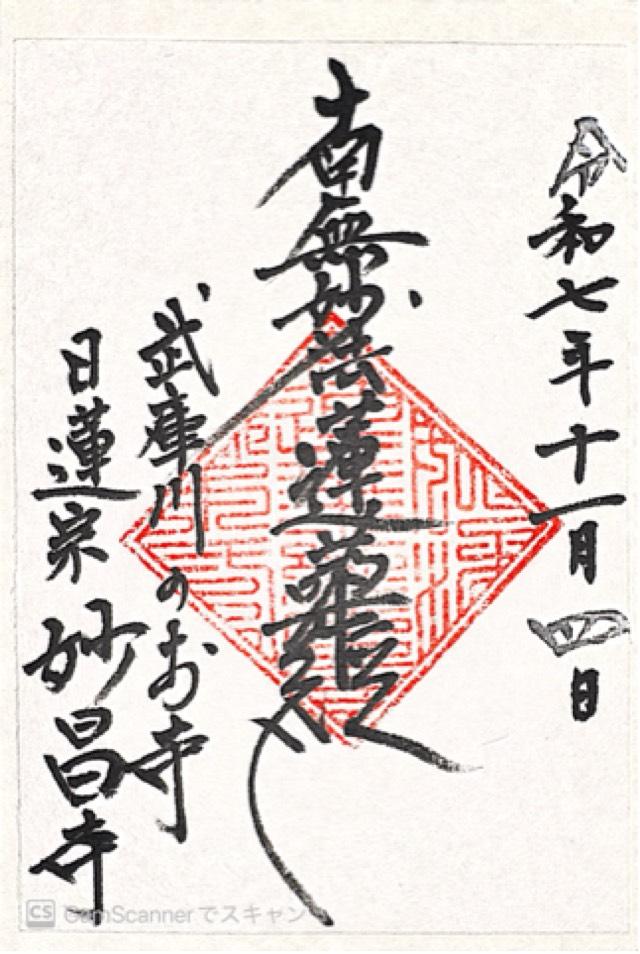 令和七年十一月四日
南無妙法蓮華経
武庫川のお寺
日蓮宗 妙昌寺
CS CamScannerでスキャン